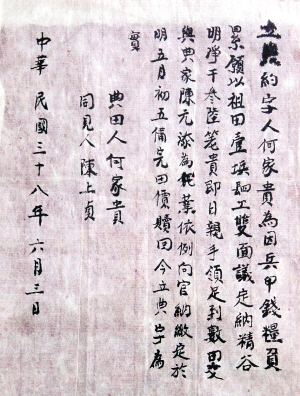 立典約字人何家貴為因兵甲錢糧負
累願以祖田壹坵四工雙面議定納精谷
明淨干叁陸籮貴即日親手領足到數田交
與典家陳元添為批葉依例向官納繳定於
明五月初五備完田價贖回今立典字為
實
典田人何家貴
同見人陳上貞
中華民國三十八年六月三日